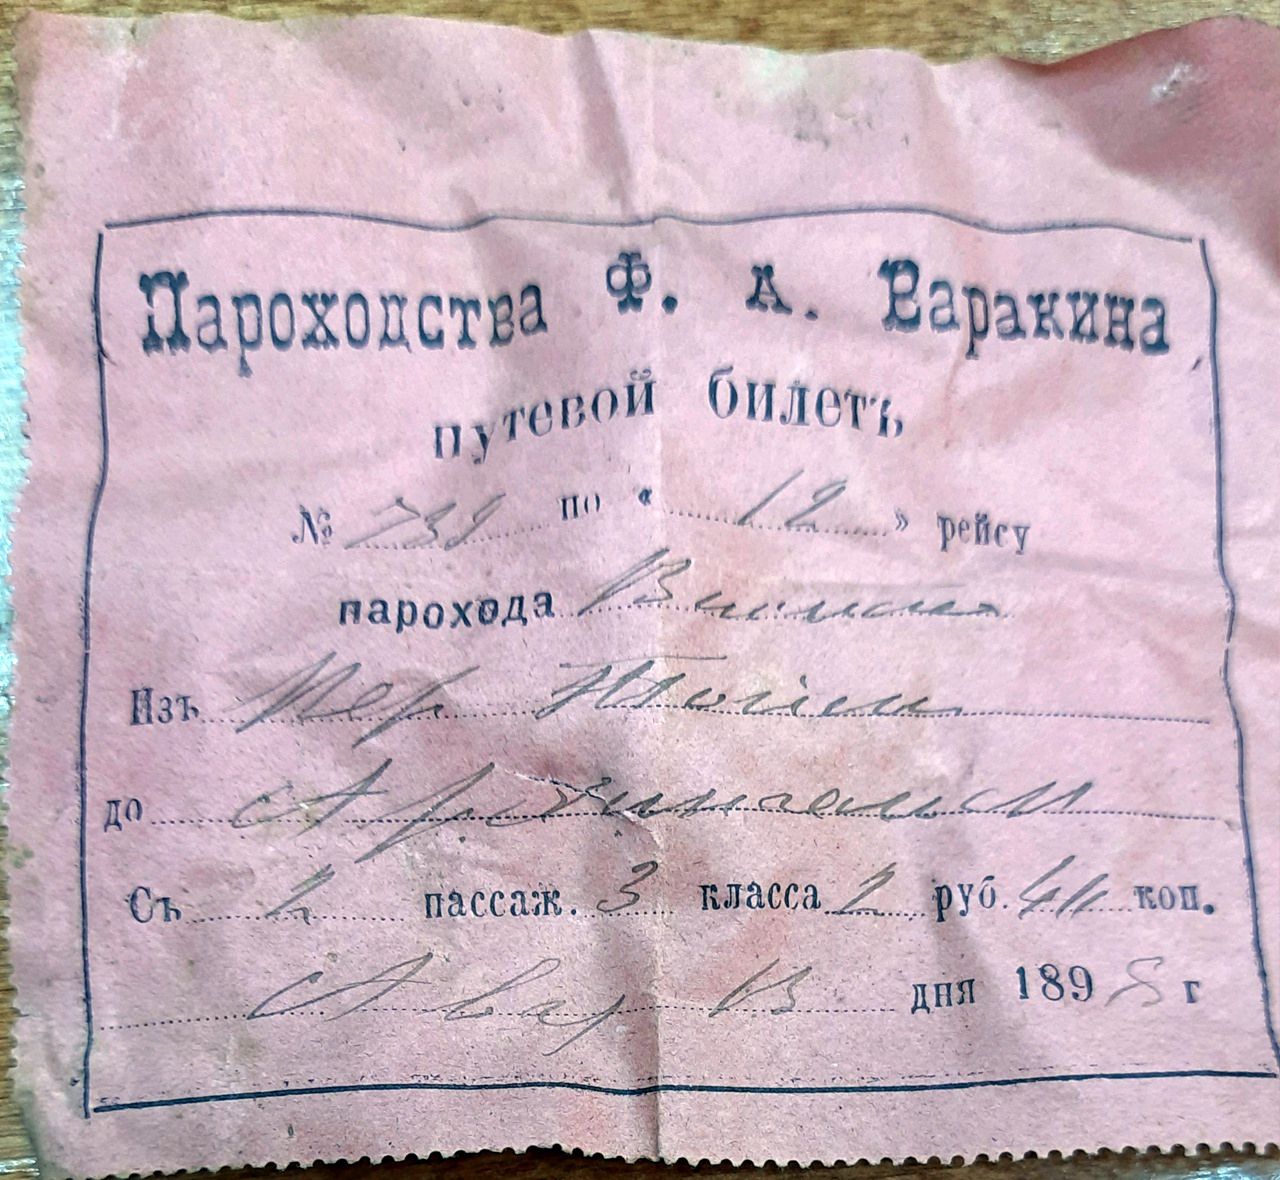 Пароходства Ф. А. Варакина
путевой билетъ
№ 739 по « 12 » рейсу
парохода
Изъ Пер
до Архангельска
Съ 2 пассаж. 3 класса 2 руб. 40 коп.
Авг 13 дня 1898 г